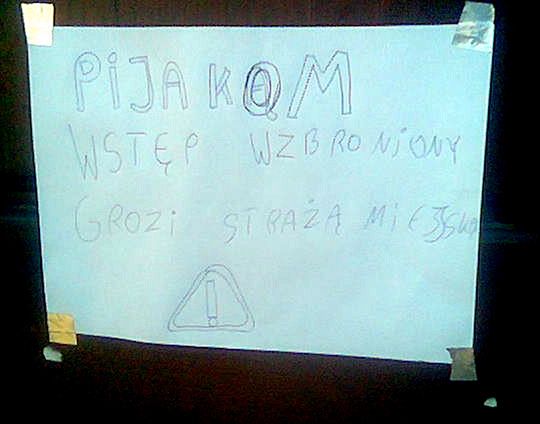 PiJAKOM
WSTĘP WZBRONiONY
GROZi STRAŻĄ MiEJSKĄ
!